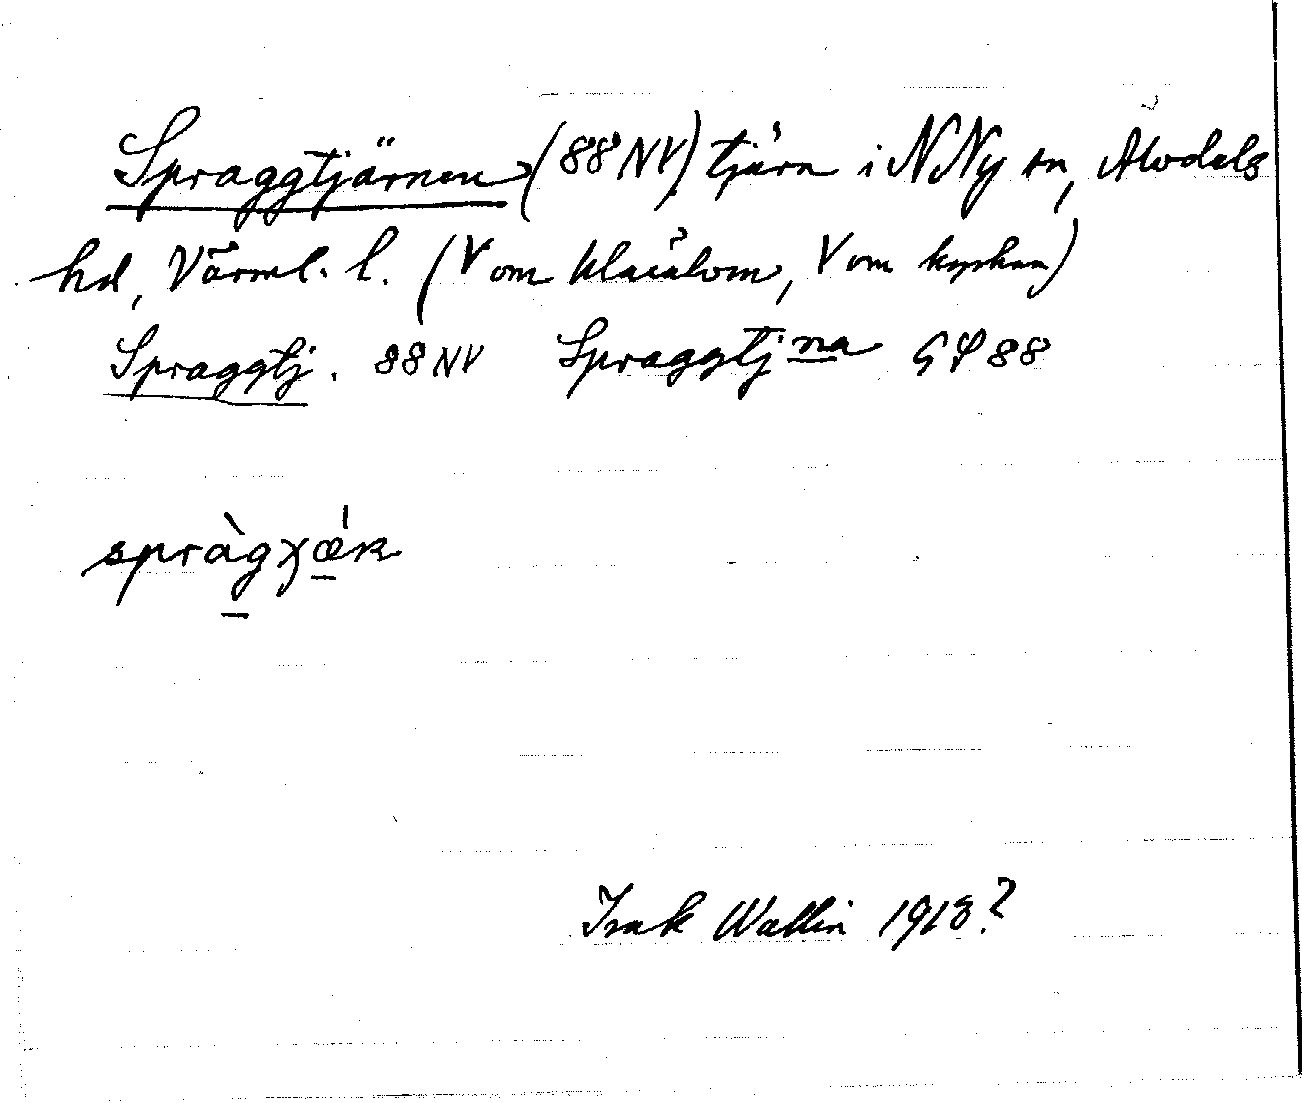 Spraggtjärnen (88 NV) tjärn i N Ny sn, Älvdals
hd, Värml. l. (V om Klarälven, V om kyrkan)
Spraggtj. 88 NV Spraggtjna GS 88
spràgχǽn
Isak Wallin 1918?